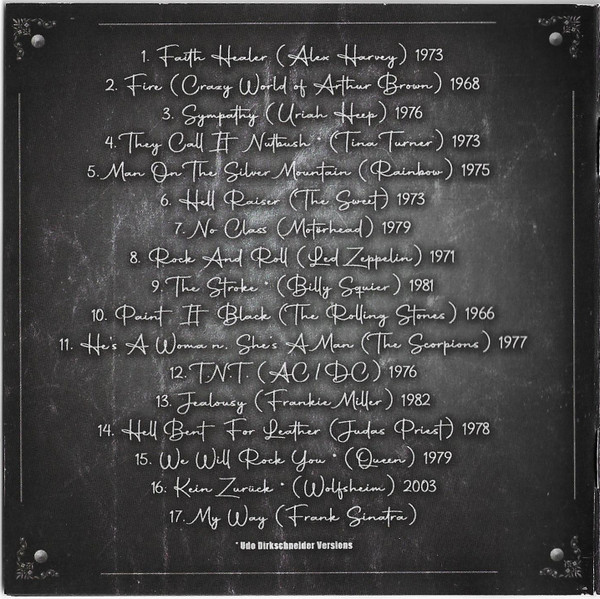 1. Faith Healer (Alex Harvey) 1973
2. Fire (Crazy World of Arthur Brown) 1968
3. Sympathy (Uriah Heep) 1976
4. They Call It Nutbush * (Tina Turner) 1973
5. Man On The Silver Mountain (Rainbow) 1975
6. Hell Raiser (The Sweet) 1973
7. No Class (Motörhead) 1979
8. Rock And Roll (Led Zeppelin) 1971
9. The Stroke * (Billy Squier) 1981
10. Paint It Black (The Rolling Stones) 1966
11. He's A Woman, She's A Man (The Scorpions) 1977
12. T.N.T. (AC/DC) 1976
13. Jealousy (Frankie Miller) 1982
14. Hell Bent For Leather (Judas Priest) 1978
15. We Will Rock You * (Queen) 1979
16. Kein Zurück * (Wolfsheim) 2003
17. My Way (Frank Sinatra)
* Udo Dirkschneider Versions